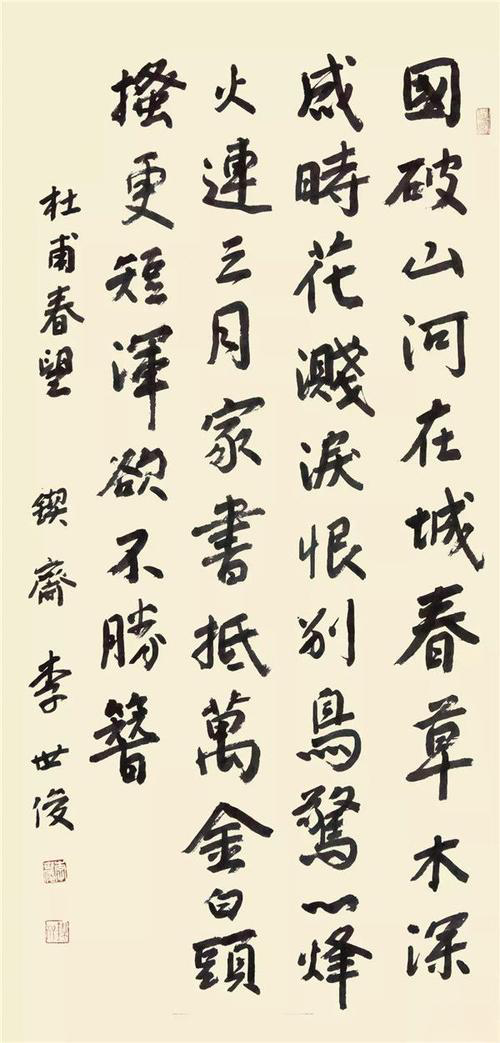 國破山河在城春草木深
感時花濺淚恨別鳥驚心烽
火連三月家書抵萬金白頭
搔更短渾欲不勝簪
杜甫春望 鍥齋 李世俊